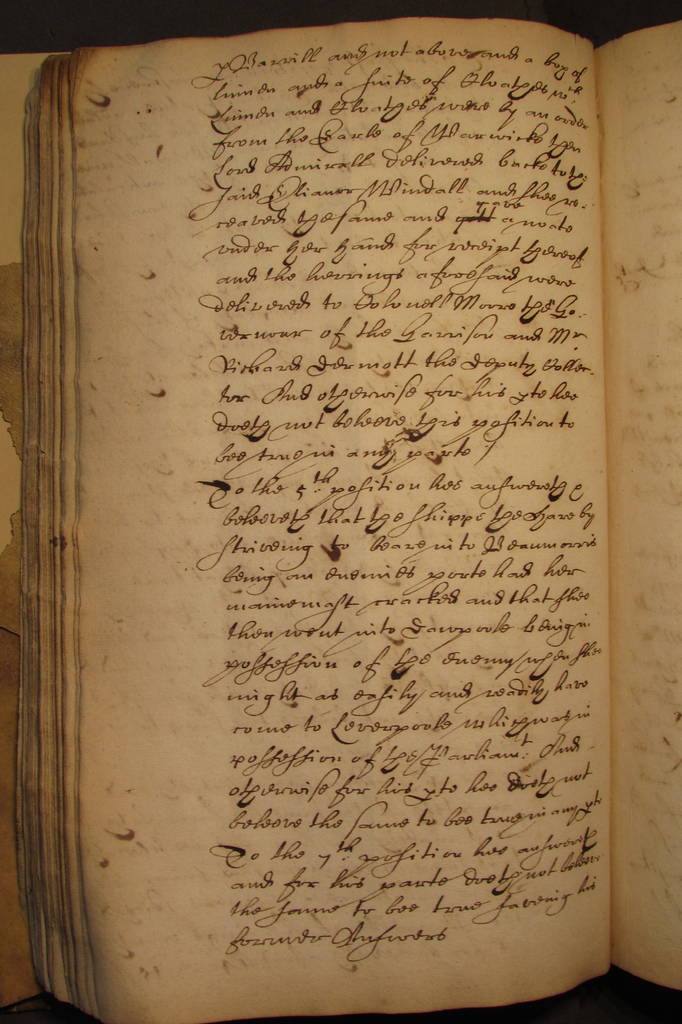 p Barrill and not above and a box of
linnen and a suite of Cloathes wch
linnen and Cloathes were by an order
from the Earle of Warwicke then
Lord Admirall delivered backe to the
said Elianor Windall and shee re-
ceaved the same and gave a noate
under her hand for receipt thereof
and the herrings aforesaid were
delivered to Colonell Moore the Go-
vernour of the Garrison and Mr
Richard Dermott the deputy Collec-
tor And otherwise for his pte hee
doeth not beleeve this position to
bee true in any parte /
To the 5th position hee answereth &
beleeveth that the shippe the Hare by
striveing to beare in to Beaumorris
being an enemies porte had her
mainemast cracked and that shee
then went into Dawpoole being in
possession of the enemy when shee
might as easily and readily have
come to Leverpoole which was in
possession of the Parliamt. And
otherwise for his pte hee doeth not
beleeve the same to bee true in any pte
To the 7th position hee answereth
and for his parte doeth not beleeve
the same to bee true saveing his
former Answers